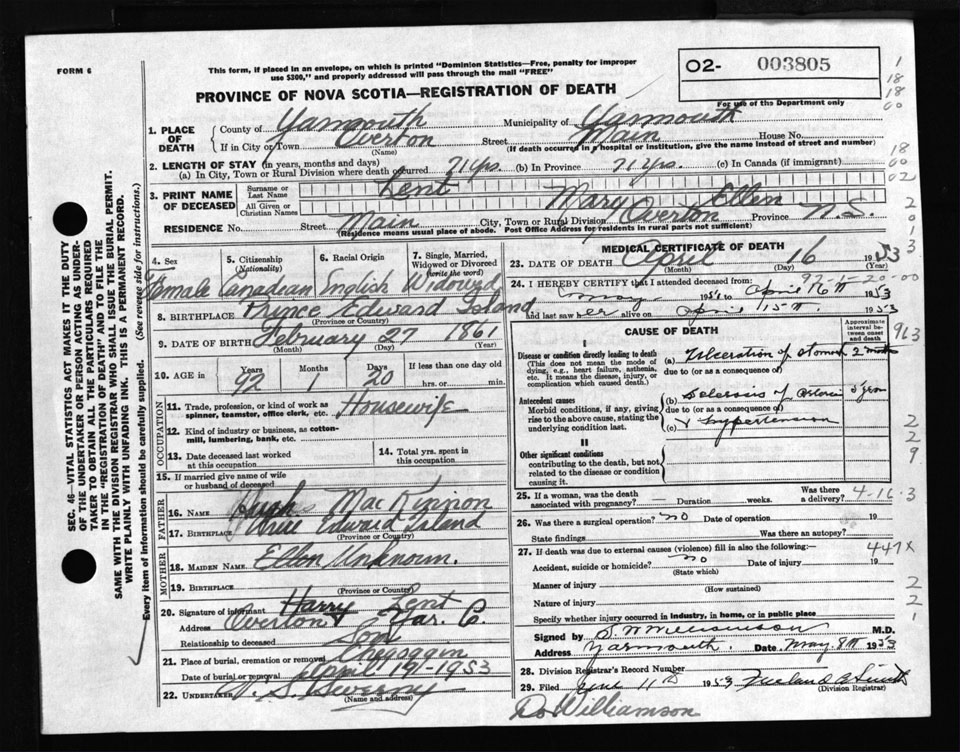 FORM 6
This form, if placed in an envelope, on which is printed "Dominion Statistics—Free, penalty for improper
use $300," and properly addressed will pass through the mail "FREE"
PROVINCE OF NOVA SCOTIA—REGISTRATION OF DEATH
O2- 003805
For use of the Department only
1. PLACE OF DEATH County of Yarmouth Municipality of Yarmouth
If in City or Town Overton (Name) Street Main House No.
(If death occurred in a hospital or institution, give the name instead of street and number)
2. LENGTH OF STAY (in years, months and days)
(a) In City, Town or Rural Division where death occurred 71 yrs. (b) In Province 71 yrs. (c) In Canada (if immigrant)
3. PRINT NAME OF DECEASED Surname or Last Name Lent
All Given or Christian Names Mary Ellen
RESIDENCE No. Street Main City, Town or Rural Division Overton Province N.S.
(Residence means usual place of abode. Post Office Address for residents in rural parts not sufficient)
4. Sex Female
5. Citizenship (Nationality) Canadian
6. Racial Origin English
7. Single, Married, Widowed or Divorced (write the word) Widowed
8. BIRTHPLACE Prince Edward Island
(Province or Country)
9. DATE OF BIRTH February 27 1861
(Month) (Day) (Year)
10. AGE in Years 92 Months 1 Days 20 If less than one day old
hrs. or min.
OCCUPATION
11. Trade, profession, or kind of work as spinner, teamster, office clerk, etc. Housewife
12. Kind of industry or business, as cotton-mill, lumbering, bank, etc.
13. Date deceased last worked at this occupation
14. Total yrs. spent in this occupation
15. If married give name of wife or husband of deceased
FATHER
16. NAME Hugh MacKinnon
17. BIRTHPLACE Prince Edward Island
(Province or Country)
MOTHER
18. MAIDEN NAME Ellen Unknown.
19. BIRTHPLACE
(Province or Country)
20. Signature of informant Harry Lent
Address Overton Yar. Co.
Relationship to deceased Son
21. Place of burial, cremation or removal Chegoggin
Date of burial or removal April 19-1953
22. Undertaker
(Name and address)
MEDICAL CERTIFICATE OF DEATH
23. DATE OF DEATH April 16 1953
(Month) (Day) (Year)
24. I HEREBY CERTIFY that I attended deceased from:
May 1951 to April 16th 1953
and last saw her alive on April 15th 1953
92-1-20-00
CAUSE OF DEATH
Approximate interval between onset and death
I
Disease or condition directly leading to death
(This does not mean the mode of dying, e.g., heart failure, asthenia, etc. It means the disease, injury, or complication which caused death.)
(a) Ulceration of stomach 2 mos
due to (or as a consequence of)
Antecedent causes
Morbid conditions, if any, giving rise to the above cause, stating the underlying condition last.
(b) Sclerosis of
due to (or as a consequence of)
(c) Hypertension
II
Other significant conditions
contributing to the death, but not related to the disease or condition causing it.
25. If a woman, was the death associated with pregnancy? — Duration weeks. Was there a delivery?
4-16-3
26. Was there a surgical operation? no Date of operation 19
State findings Was there an autopsy?
27. If death was due to external causes (violence) fill in also the following:—
447X
Accident, suicide or homicide? no Date of injury 19
(State which)
Manner of injury
(How sustained)
Nature of injury
Specify whether injury occurred in industry, in home, or in public place
Signed by M.D.
Address Yarmouth. Date May 8th 1953
28. Division Registrar's Record Number
29. Filed June 11th 1953
(Division Registrar)
Dr Williamson
SEC. 46—VITAL STATISTICS ACT MAKES IT THE DUTY
OF THE UNDERTAKER OR PERSON ACTING AS UNDER-
TAKER TO OBTAIN ALL THE PARTICULARS REQUIRED
IN THE "REGISTRATION OF DEATH" AND TO FILE THE
SAME WITH THE DIVISION REGISTRAR WHO SHALL ISSUE THE BURIAL PERMIT.
WRITE PLAINLY WITH UNFADING INK. THIS IS A PERMANENT RECORD.
Every item of information should be carefully supplied. (See reverse side for instructions.)
1
18
18
00
18
00
02
2
0
1
3
963
2
2
9
2
2
1